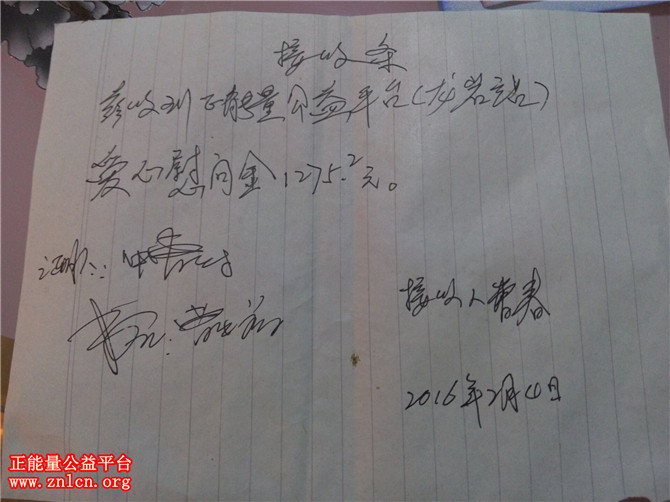 接收条
兹收到正能量公益平台(龙岩站)
爱心慰问金1275.2元。
证明:
接收人
2016年2月4日
正能量公益平台
www.znlcn.org